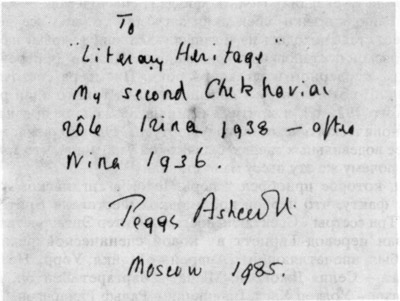 To
"Literary Heritage"
My second Chekhovian
rôle Irina 1938 – after
Nina 1936.
Peggy Ashcroft.
Moscow 1985.